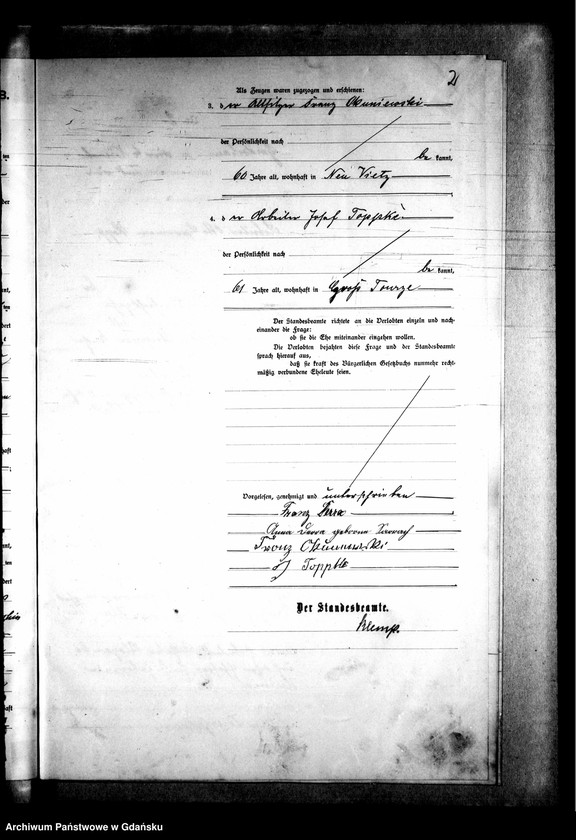 2
Als Zeugen waren zugezogen und erschienen:
3. der Altsitzer Franz Okuniewski
der Persönlichkeit nach
be kannt,
60 Jahre alt, wohnhaft in Neu Vietz
4. der Arbeiter Josef Toppke
der Persönlichkeit nach
be kannt,
61 Jahre alt, wohnhaft in Groß
Der Standesbeamte richtete an die Verlobten einzeln und nach-
einander die Frage:
ob sie die Ehe miteinander eingehen wollen.
Die Verlobten bejahten diese Frage und der Standesbeamte
sprach hierauf aus,
daß sie kraft des Bürgerlichen Gesetzbuchs nunmehr recht-
mäßig verbundene Eheleute seien.
Vorgelesen, genehmigt und unterschrieben
Franz Derra
Anna Derra geborene
Franz Okuniewski
J Toppke
Der Standesbeamte.
Klemp.
Archiwum Państwowe w Gdańsku